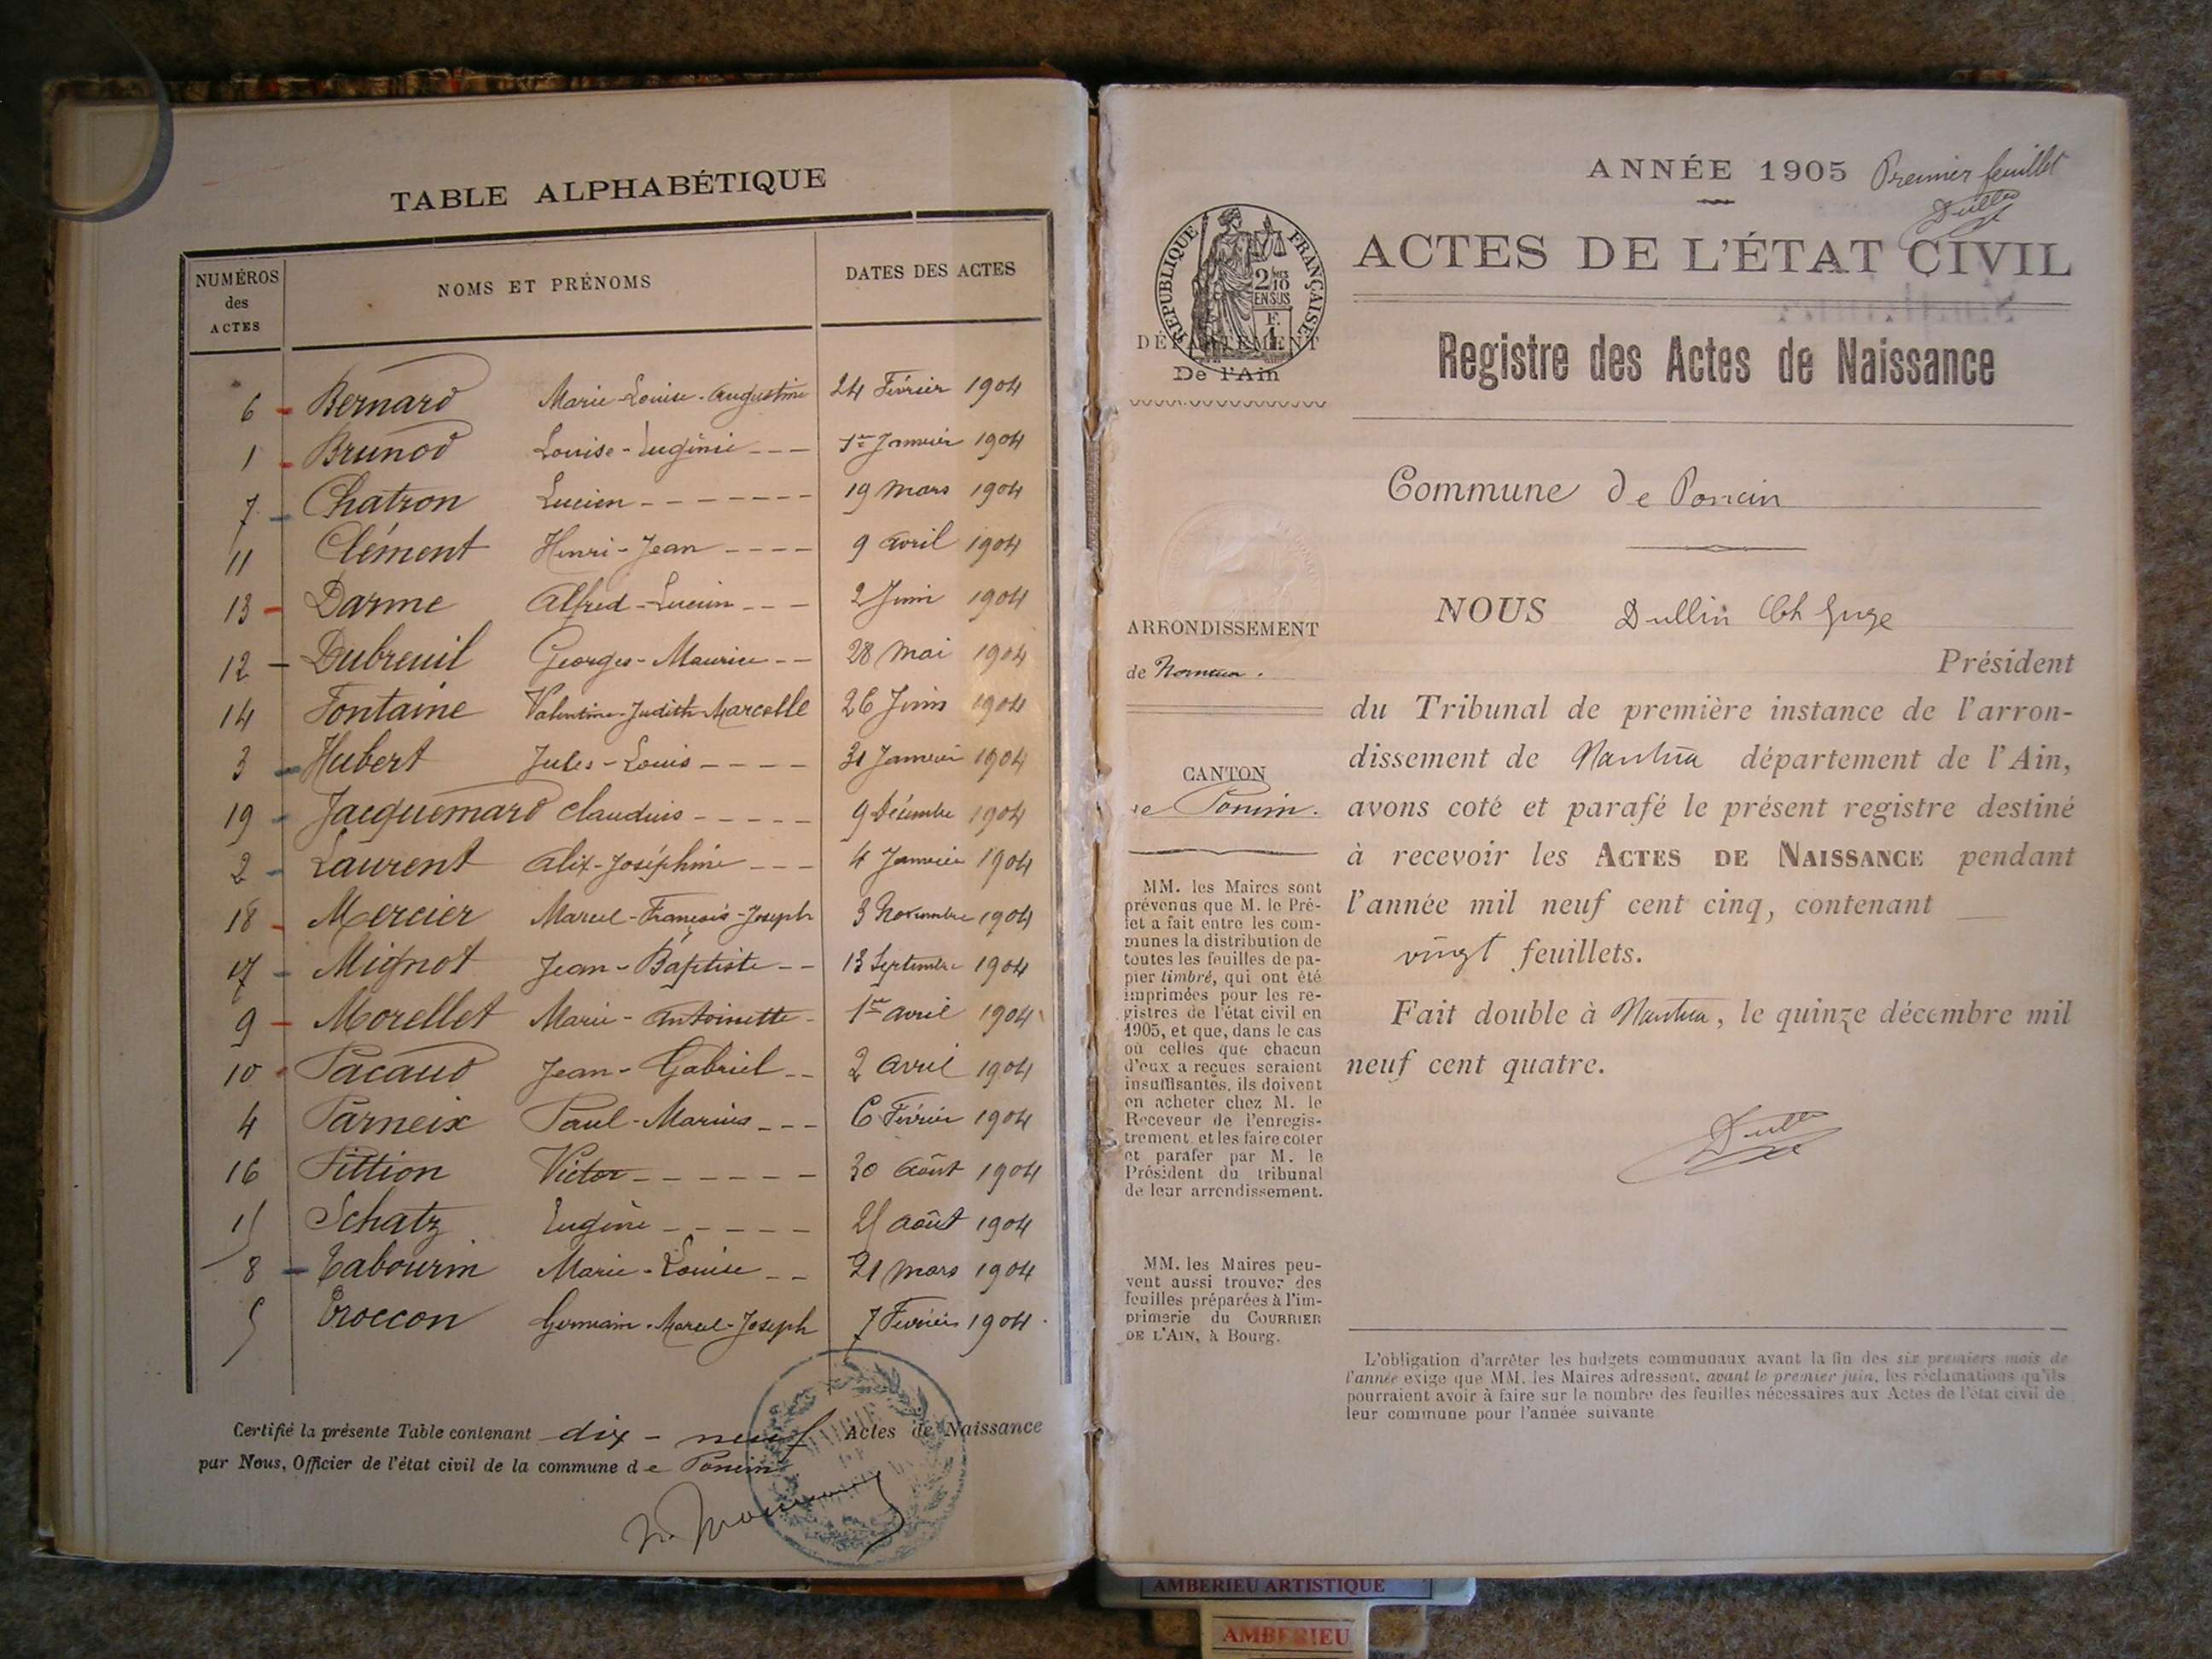 TABLE ALPHABÉTIQUE
NUMÉROS
des
ACTES
NOMS ET PRÉNOMS
DATES DES ACTES
6 - Bernard Marie-Louise-Augustine 24 Février 1904
1 - Brunod Louise-Eugénie --- 1er Janvier 1904
7 - Chatron Lucien ------- 19 Mars 1904
11 Clément Henri-Jean ---- 9 Avril 1904
13 - Darme Alfred-Lucien --- 2 Juin 1904
12 - Dubreuil Georges-Maurice -- 28 Mai 1904
14 Fontaine Valentine-Judith-Marcelle 26 Juin 1904
3 - Hubert Jules-Louis ---- 31 Janvier 1904
19 - Jacquemard Claudius ----- 9 Décembre 1904
2 - Laurent Alix-Joséphine --- 4 Janvier 1904
18 - Mercier Marcel-François-Joseph 3 Novembre 1904
17 - Mignot Jean-Baptiste -- 13 Septembre 1904
9 - Morellet Marie-Antoinette - 1er Avril 1904
10 - Pacaud Jean-Gabriel -- 2 Avril 1904
4 Parneix Paul-Marius --- 6 Février 1904
16 Pittion Victor ------ 30 Août 1904
15 Schatz Eugène ----- 25 Août 1904
8 - Tabourin Marie-Louise -- 21 Mars 1904
5 Troccon Germain-Marcel-Joseph 7 Février 1904
Certifié la présente Table contenant dix-neuf Actes de Naissance
par Nous, Officier de l'état civil de la commune de Poncin
MAIRIE
ANNÉE 1905 Premier feuillet
ACTES DE L'ÉTAT CIVIL
RÉPUBLIQUE FRANÇAISE
2/10
EN SUS
F.
1
DÉPARTEMENT
De l'Ain
Registre des Actes de Naissance
Commune de Poncin
NOUS Dullin
ARRONDISSEMENT
de Nantua.
Président
du Tribunal de première instance de l'arron-
dissement de Nantua département de l'Ain,
avons coté et parafé le présent registre destiné
à recevoir les ACTES DE NAISSANCE pendant
l'année mil neuf cent cinq, contenant
vingt feuillets.
Fait double à Nantua, le quinze décembre mil
neuf cent quatre.
CANTON
de Poncin.
MM. les Maires sont
prévenus que M. le Pré-
fet a fait entre les com-
munes la distribution de
toutes les feuilles de pa-
pier timbré, qui ont été
imprimées pour les re-
gistres de l'état civil en
1905, et que, dans le cas
où celles que chacun
d'eux a reçues seraient
insuffisantes, ils doivent
en acheter chez M. le
Receveur de l'enregis-
trement et les faire coter
et parafer par M. le
Président du tribunal
de leur arrondissement.
MM. les Maires peu-
vent aussi trouver des
feuilles préparées à l'im-
primerie du COURRIER
DE L'AIN, à Bourg.
L'obligation d'arrêter les budgets communaux avant la fin des six premiers mois de
l'année exige que MM. les Maires adressent, avant le premier juin, les réclamations qu'ils
pourraient avoir à faire sur le nombre des feuilles nécessaires aux Actes de l'état civil de
leur commune pour l'année suivante
AMBERIEU ARTISTIQUE
AMBERIEU